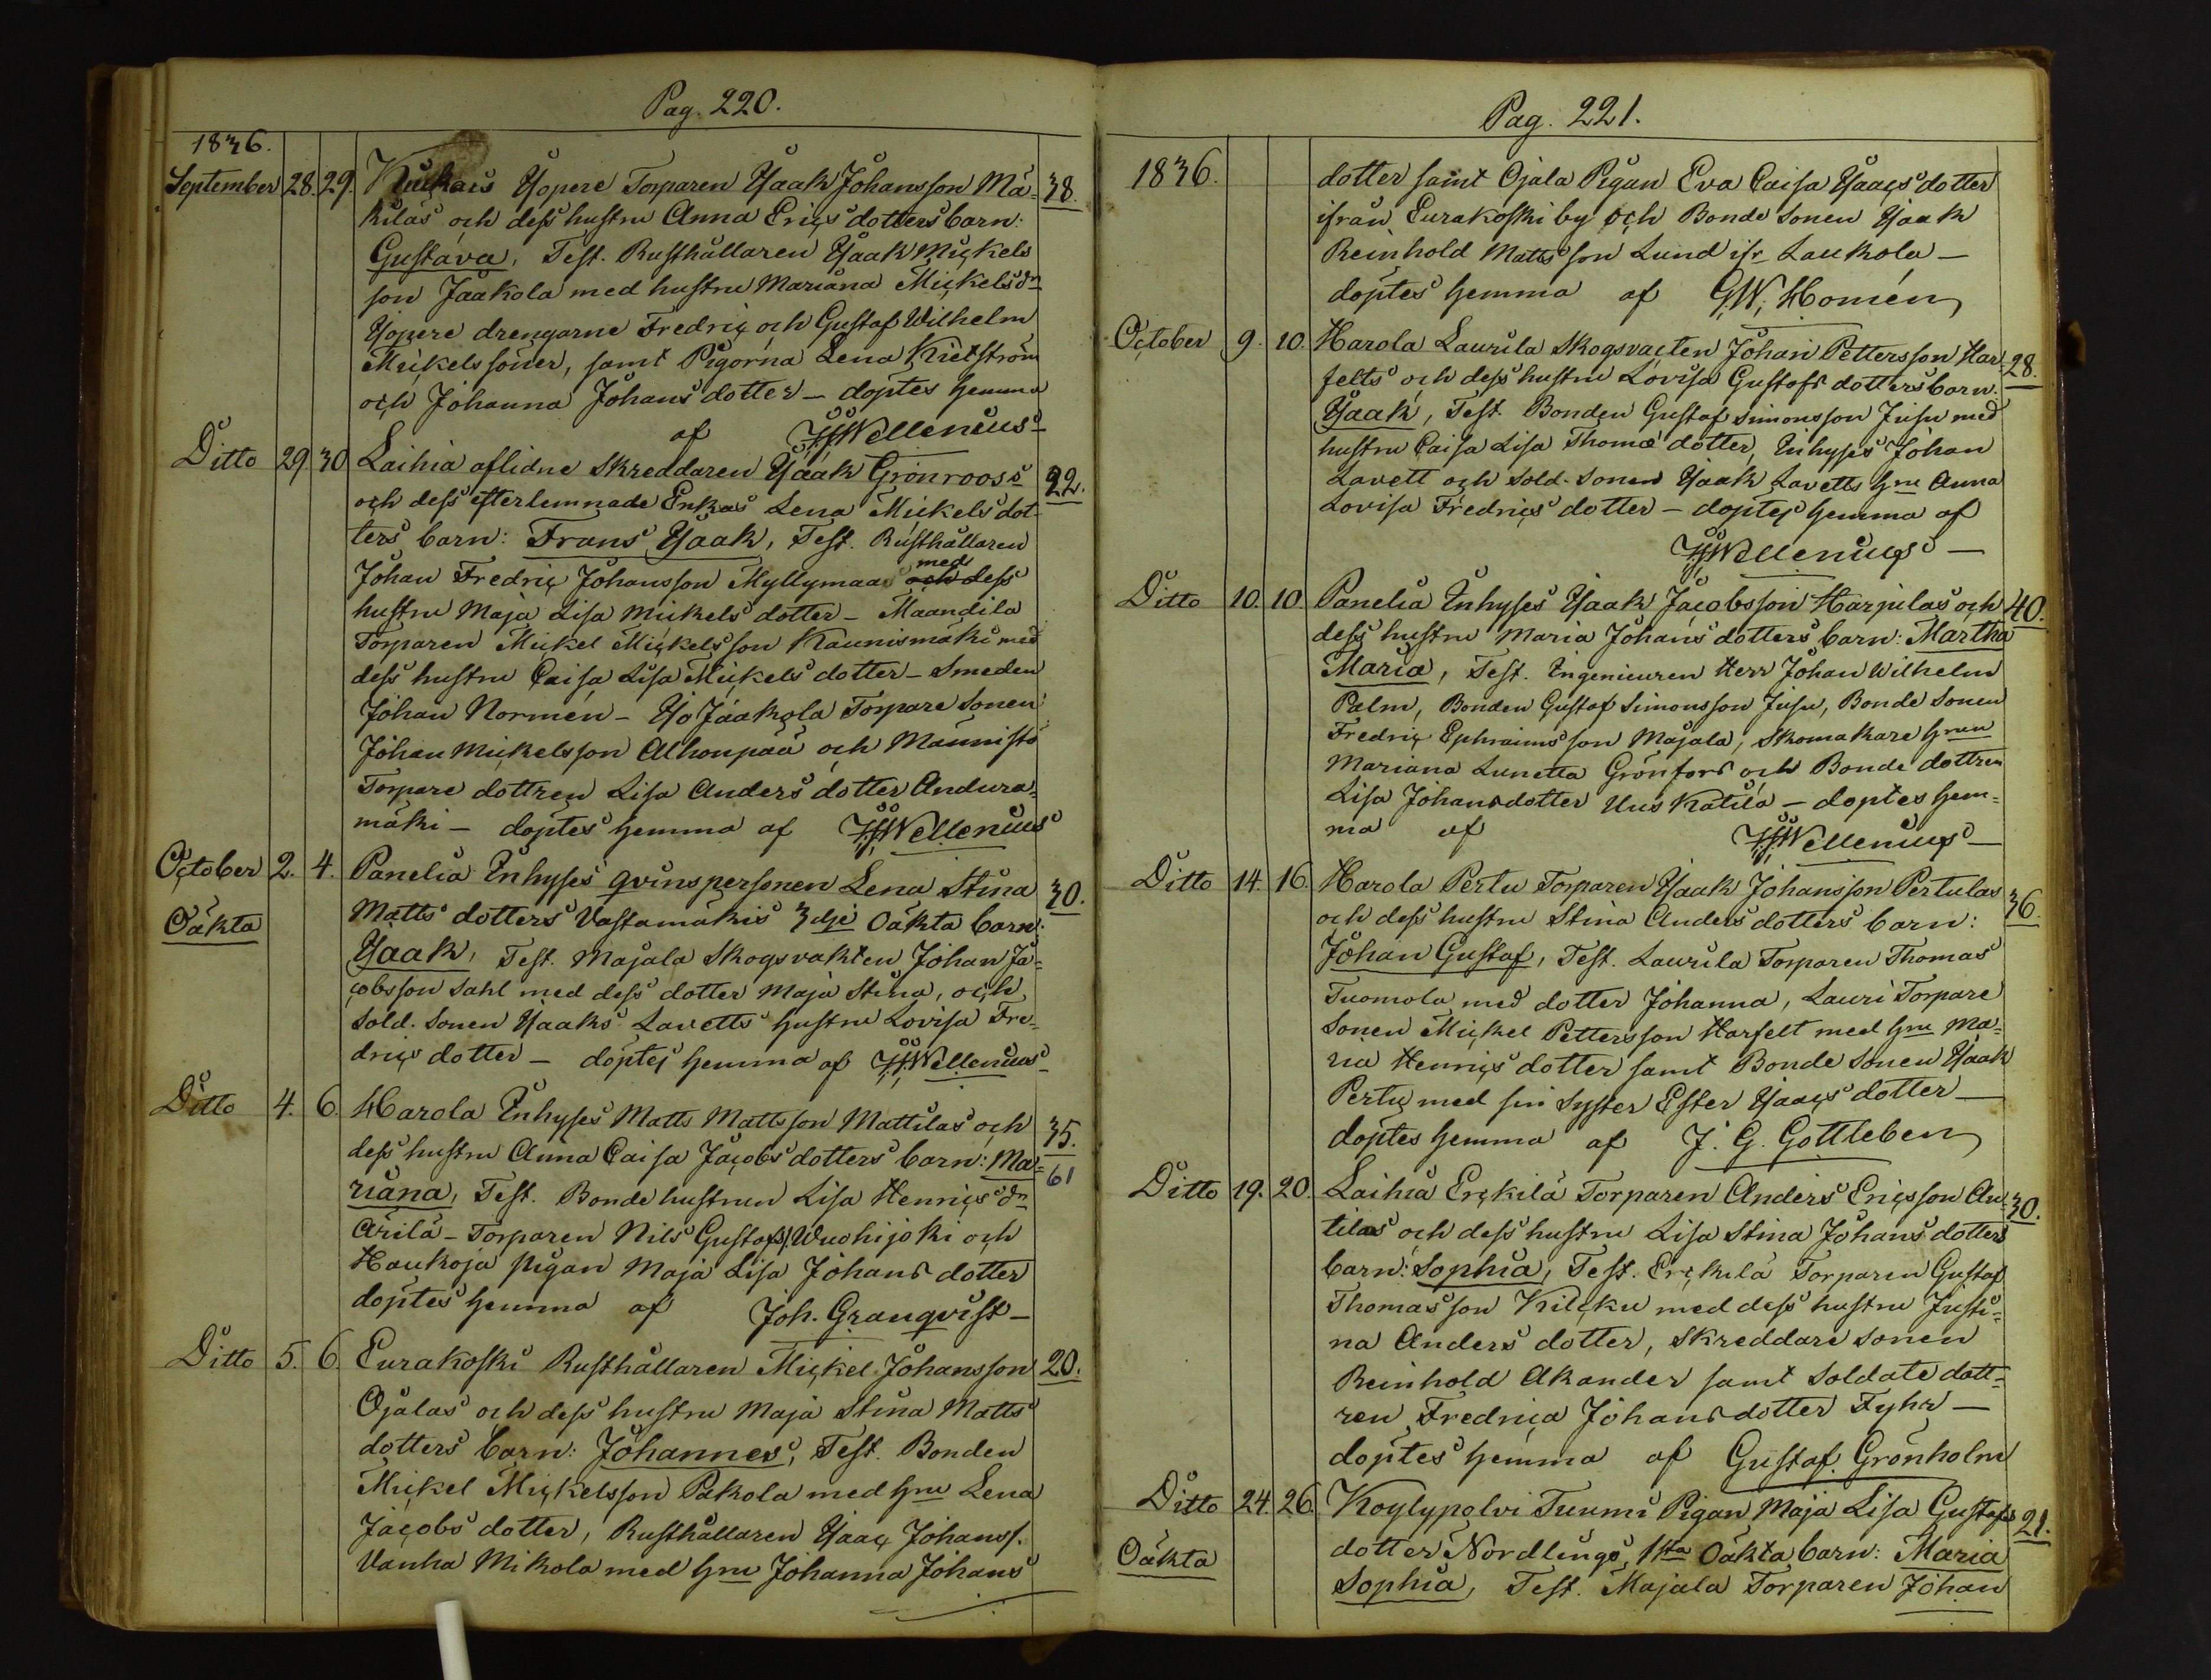 Pag. 220.
1836.
September 28. 29. Kiukais Yopere Torparen Ysaak Johansson Mä- 38.
kiläs och dess hustru Anna Erics dotters barn:
Gustava, Test. Rusthållaren Ysaak Mickels
son Jaakola med hustru Mariana Mickelsdr
Yopere drengarne Fredric och Gustaf Wilhelm
Mickels söner, samt Pigorna Lena Kietström
och Johanna Johans dotter – döptes hemma
af Wellenius
Ditto 29 30 Laihia aflidne Skreddaren Ysaak Grönrooss 22.
och dess efterlemnade Enkas Lena Mickels dot
ters barn: Frans Ysaak, Test. Rusthållaren
Johan Fredric Johansson Myllymaa och med dess
hustru Maja Lisa Mickels dotter – Maandila
Torparen Mickel Mickelsson Kaunismäki med
dess hustru Caisa Lisa Mickels dotter – Smeden
Johan Normén – Yso Jaakola Torpare Sonen
Johan Mickelsson Alhonpää och Männistö
Torpare dottren Lisa Anders dotter Andura-
mäki – döptes hemma af Wellenius
October 2. 4. Panelia Inhyses qvinspersonen Lena Stina 30.
Oäkta Matts dotters Vastamäkis 3dje Oäkta barn:
Ysaak, Test. Majala Skogsvakten Johan Ja-
cobsson Sahl med dess dotter Maja Stina, och
Sold. Sonen Ysaaks Lavetts hustru Lovisa Fre-
drics dotter – döptes hemma af Wellenius
Ditto 4. 6. Harola Inhyses Matts Mattsson Mattilas och 35.
dess hustru Anna Caisa Jacobs dotters barn: Ma- 61
riana, Test. Bonde hustrun Lisa Henrics dr
Arilä – Torparen Nils Gustafs. Wuohijoki och
Haukoja pigan Maja Lisa Johans dotter
döptes hemma af Joh. Granqvist –
Ditto 5. 6. Eurakoski Rusthållaren Mickel Johansson 20.
Ojalas och dess hustru Maja Stina Matts
dotters barn: Johannes, Test. Bonden
Mickel Mickelsson Pakola med hru Lena
Jacobs dotter, Rusthållaren Ysaac Johanss.
Vanha Mikola med hru Johanna Johans
Pag. 221.
1836. dotter samt Ojala Pigan Eva Caisa Ysaacs dotter
ifrån Eurakoski by och Bonde Sonen Ysaak
Reinhold Matts son Lund ifr Laukola –
döptes hemma af G.W. Homén
October 9. 10. Harola Laurila Skogsvacten Johan Pettersson Har- 28.
felts och dess hustru Lovisa Gustafs dotters barn.
Ysaak, Test. Bonden Gustaf Simonsson Jusu med
hustru Caisa Lisa Thomæ dotter, Inhyses Johan
Lavett och Sold. Sonen Ysaak Lavetts hru Anna
Lovisa Fredrics dotter – döptes hemma af
Wellenius –
Ditto 10. 10. Panelia Inhyses Ysaak Jacobsson Harjulas och 40.
dess hustru Maria Johans dotters barn: Martha
Maria, Test. Ingenieuren Herr Johan Wilhelm
Palm, Bonden Gustaf Simonsson Jusu, Bonde Sonen
Fredric Ephraimsson Majala, Skomakare hrun
Mariana Lunetta Grönfors och Bonde dottren
Lisa Johansdotter Uus Katila – döptes hem-
ma af Wellenius –
Ditto 14. 16. Harola Pertu Torparen Ysaak Johansson Pertulas 36.
och dess hustru Stina Anders dotters barn:
Johan Gustaf, Test. Laurila Torparen Thomas
Tuomola med dotter Johanna, Lauri Torpare
Sonen Mickel Pettersson Harfelt med hru Ma-
ria Henrics dotter samt Bonde Sonen Ysaak
Pertu med sin Syster Ester Ysaacs dotter –
döptes hemma af J. G. Gottleben
Ditto 19. 20. Laihia Erckilä Torparen Anders Ericsson An- 30.
tilas och dess hustru Lisa Stina Johans dotters
barn: Sophia, Test. Erckilä Torparen Gustaf
Thomasson Kilcku med dess hustru Justi-
na Anders dotter, Skreddare Sonen
Reinhold Akander samt Soldate dott-
ren Fredrica Johansdotter Fyhr –
döptes hemma af Gustaf Grönholm
Ditto 24. 26. Köylypolvi Tuumi Pigan Maja Lisa Gustafs 21.
Oäkta dotter Nordlings, 1sta Oäkta barn: Maria
Sophia, Test. Majala Torparen Johan